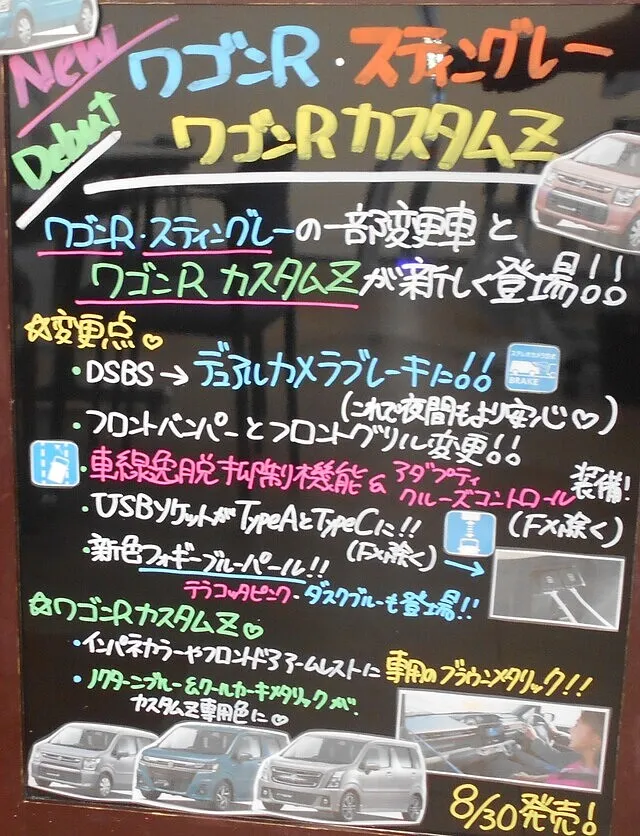 New ワゴンR・スティングレー
Debut ワゴンRカスタムZ
ワゴンR・スティングレーの一部変更車と
ワゴンR カスタムZが新しく登場!!
☆変更点♡
・DSBS→デュアルカメラブレーキに!!
ステレオカメラ方式
BRAKE
(これで夜間もより安心♡)
・フロントバンパーとフロントグリル変更!!
・車線逸脱抑制機能&アダプティクルーズコントロール装備!
(FX除く)
・USBソケットがTypeAとTypeCに!!
(FX除く)
・新色フォギーブルーパール!!
テラコッタピンク・ダスクブルーも登場!!
☆ワゴンRカスタムZ♡
・インパネカラーやフロントドアアームレストに専用のブラウンメタリック!!
・ノクターンブルー&クールカーキメタリックが、
カスタムZ専用色に♡
8/30発売!